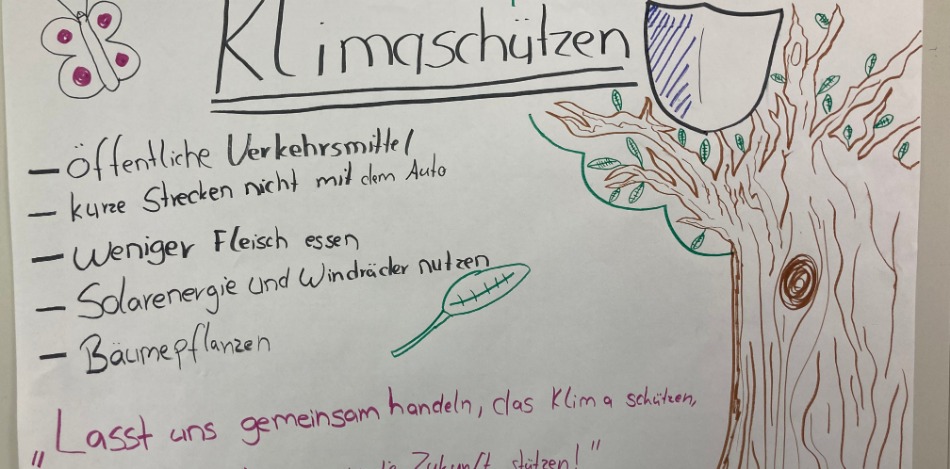 Klimaschützen
– öffentliche Verkehrsmittel
– kurze Strecken nicht mit dem Auto
– Weniger Fleisch essen
– Solarenergie und Windräder nutzen
– Bäumepflanzen
„Lasst uns gemeinsam handeln, das Klima schützen,
die Zukunft stützen!"